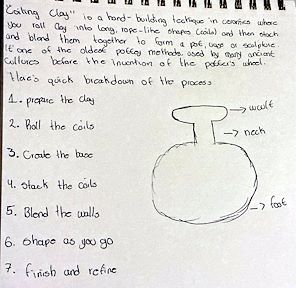 "Coiling Clay" is a hand-building technique in ceramics where
you roll clay into long, rope-like shapes (coils) and then stack
and blend them together to form a pot, vase or sculpture
It one of the oldest pottery methods used by many ancient
cultures before the invention of the potter's wheel.
Here's quick breakdown of the process
1. prepare the clay
2. Roll the coils
3. Create the base
4. Stack the coils
5. Blend the walls
6. Shape as you go
7. finish and refine
mouth
neck
foot